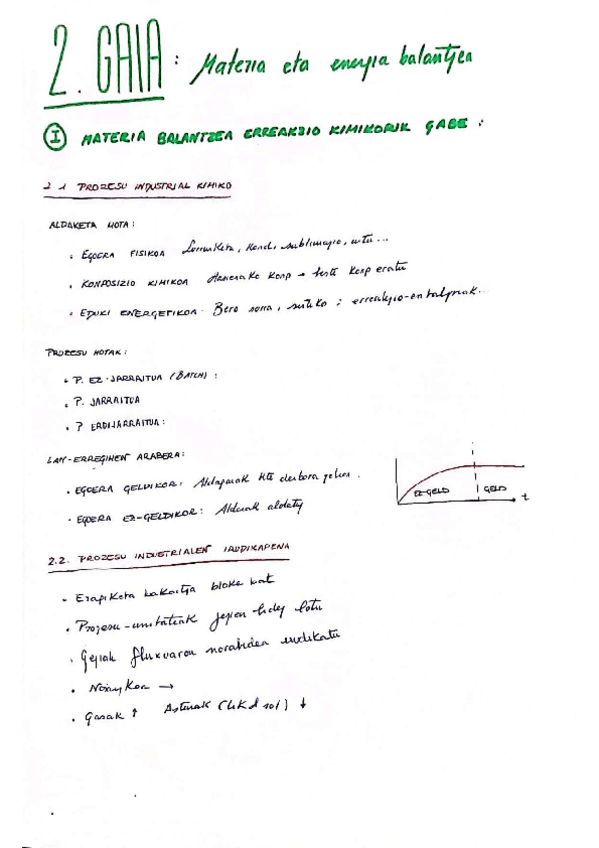 2. GAIA: Materia eta energia balantzea
I MATERIA BALANTZEA ERREAKZIO KIMIKORIK GABE:
2.1 PROZESU INDUSTRIAL KIMIKO
ALDAKETA MOTA:
• EGOERA FISIKOA Lurrunketa, Kond, sublimazio, urtu...
• KONPOSIZIO KIMIKOA Hasierako Konp → beste Konp eratu
• EDUKI ENERGETIKOA Bero : erreakzio-entalpiak...
PROZESU MOTAK:
• P. EZ-JARRAITUA (BATCH):
• P. JARRAITUA
• P ERDIJARRAITUA:
LAN-ERREGIMEN ARABERA:
• EGOERA GELDIKOR: Aldagaiak Kte denbora
• EGOERA EZ-GELDIKOR: aldatu
EZ-GELD GELD t
2.2. PROZESU INDUSTRIALEN IRUDIKAPENA
• Eragiketa bakoitza bloke bat
• Prozesu-unitateak gezien bidez lotu
• Geziak fluxuaren norabidea indikatu
• →
• Gasak ↑ Astunak (likd sol) ↓